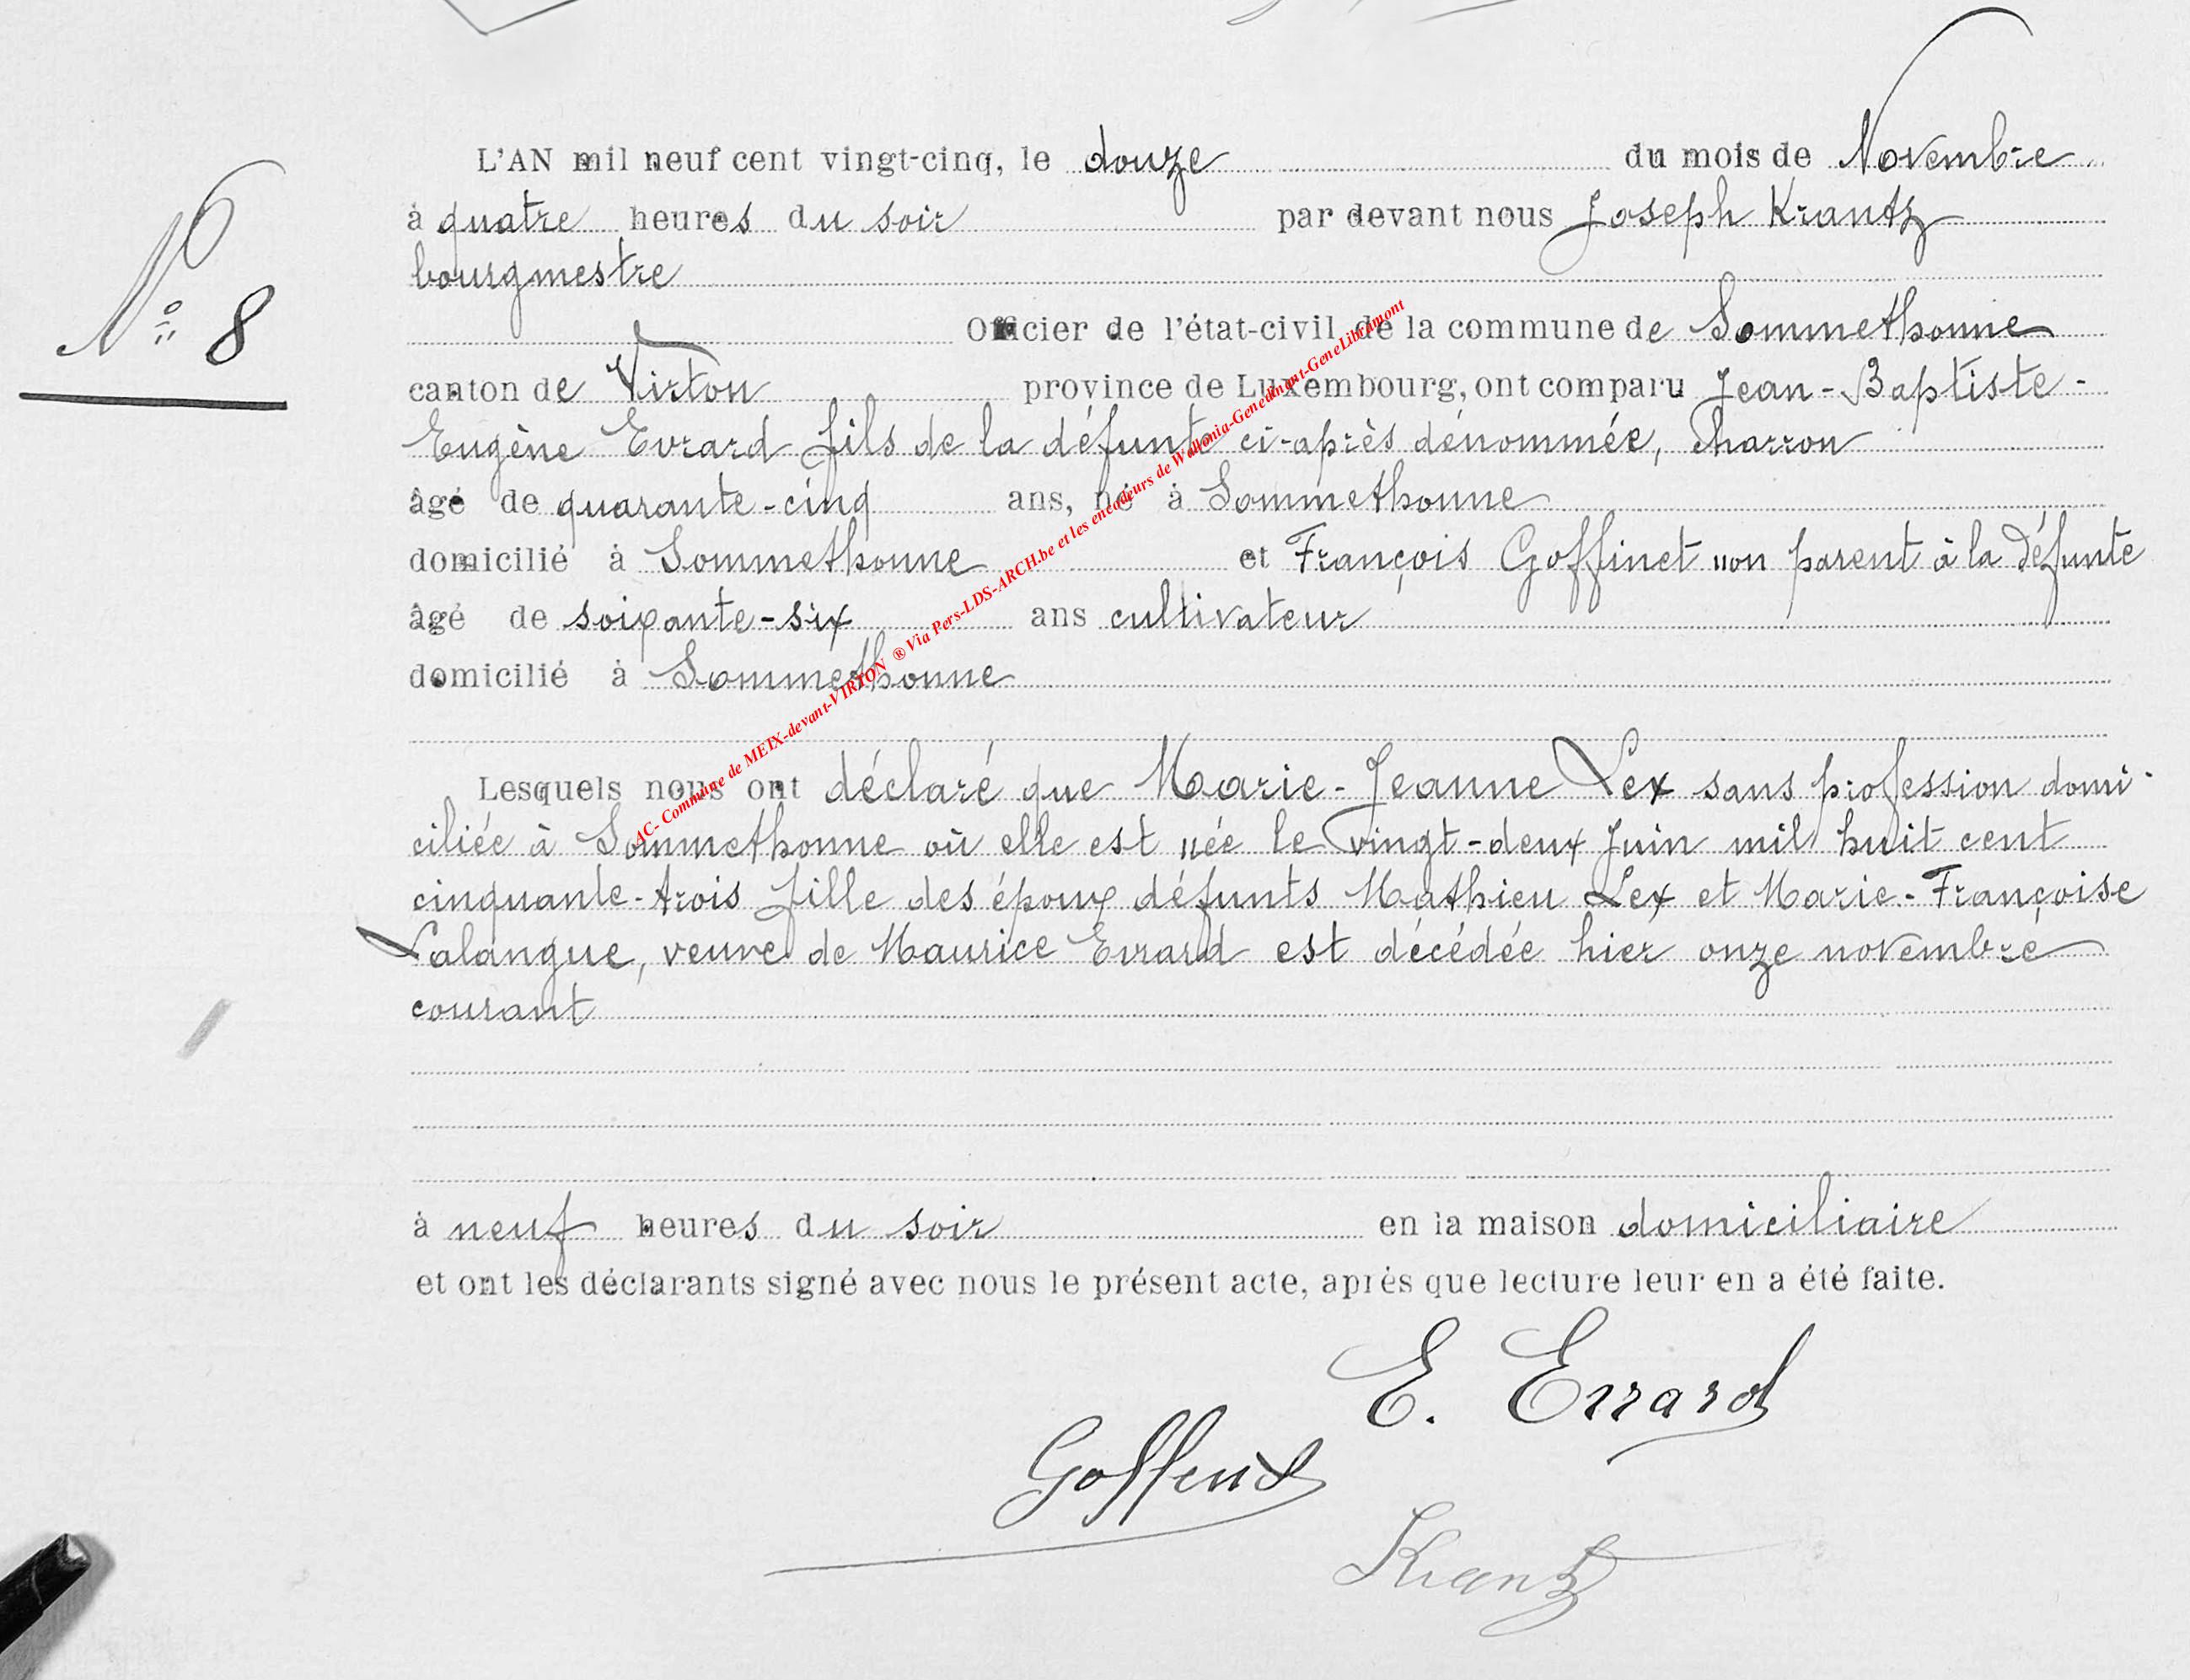 L'AN mil neuf cent vingt-cinq, le douze du mois de Novembre
à quatre heures du soir par devant nous Joseph Krantz
bourgmestre
N° 8
Officier de l'état-civil de la commune de Sommethonne
canton de Virton province de Luxembourg, ont comparu Jean-Baptiste-
Eugène Evrard fils de la défunte ci-après dénommée, charron
âgé de quarante-cinq ans, né à Sommethonne
domicilié à Sommethonne et François Goffinet non parent à la défunte
âgé de soixante-six ans cultivateur
domicilié à Sommethonne
AC- Commune de MEIX-devant-VIRTON ® Via Pers-LDS-ARCH.be et les encodeurs de Wallonia-Genedinant-GeneLibramont
Lesquels nous ont déclaré que Marie-Jeanne Lex sans profession domi-
ciliée à Sommethonne où elle est née le vingt-deux Juin mil huit cent
cinquante-trois fille des époux défunts Mathieu Lex et Marie-Françoise
Lalangue, veuve de Maurice Evrard est décédée hier onze novembre
courant
à neuf heures du soir en la maison domiciliaire
et ont les déclarants signé avec nous le présent acte, après que lecture leur en a été faite.
E. Evrard
Goffinet
Krantz